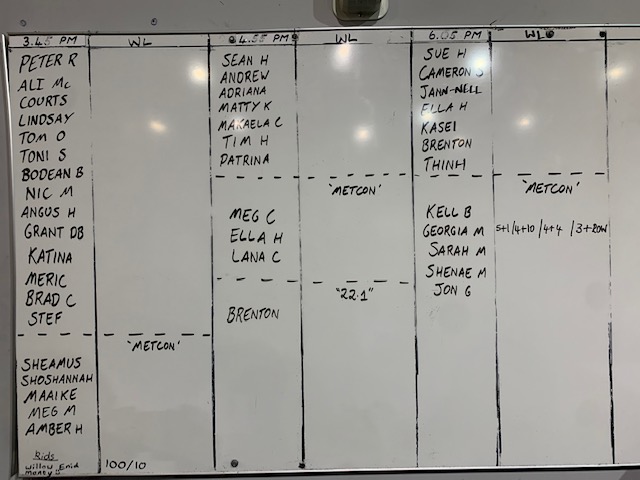 3.45 PM
WL
PETER R
ALI Mc
COURTS
LINDSAY
TOM O
TONI S
BODEAN B
NIC M
ANGUS H
GRANT DB
KATINA
MERIC
BRAD C
STEF
'METCON'
SHEAMUS
SHOSHANNAH
MAAIKE
MEG M
AMBER H
Kids
Willow Enid
100/10
4.55 PM
WL
SEAN H
ANDREW
ADRIANA
MATTY K
MAKAELA C
TIM H
PATRINA
'METCON'
MEG C
ELLA H
LANA C
"22.1"
BRENTON
6.05 PM
WL
SUE H
CAMERON S
JANN-NELL
ELLA H
KASEI
BRENTON
THINH
'METCON'
KELL B
GEORGIA M 5+1/4+10/4+4/3+20W
SARAH M
SHENAE M
JON G